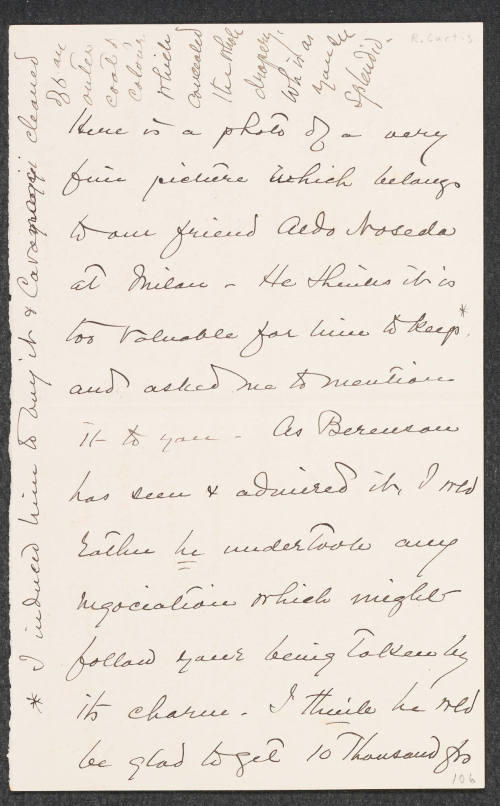 R. Curtis
Here is a photo of a very
fine picture which belongs
to our friend Aldo Noseda
at Milan - He thinks it is
too valuable for him to keep*
and asked me to mention
it to you - As Berenson
has seen & admired it, I wld
rather he undertook any
negociation which might
follow your being taken by
its charm - I think he wld
be glad to get 10 Thousand frs
106
* I induced him to buy it & Cavenaghi cleaned
off an
outer
coat of
colour
which
concealed
the whole
drapery,
which is as
you see
splendid.